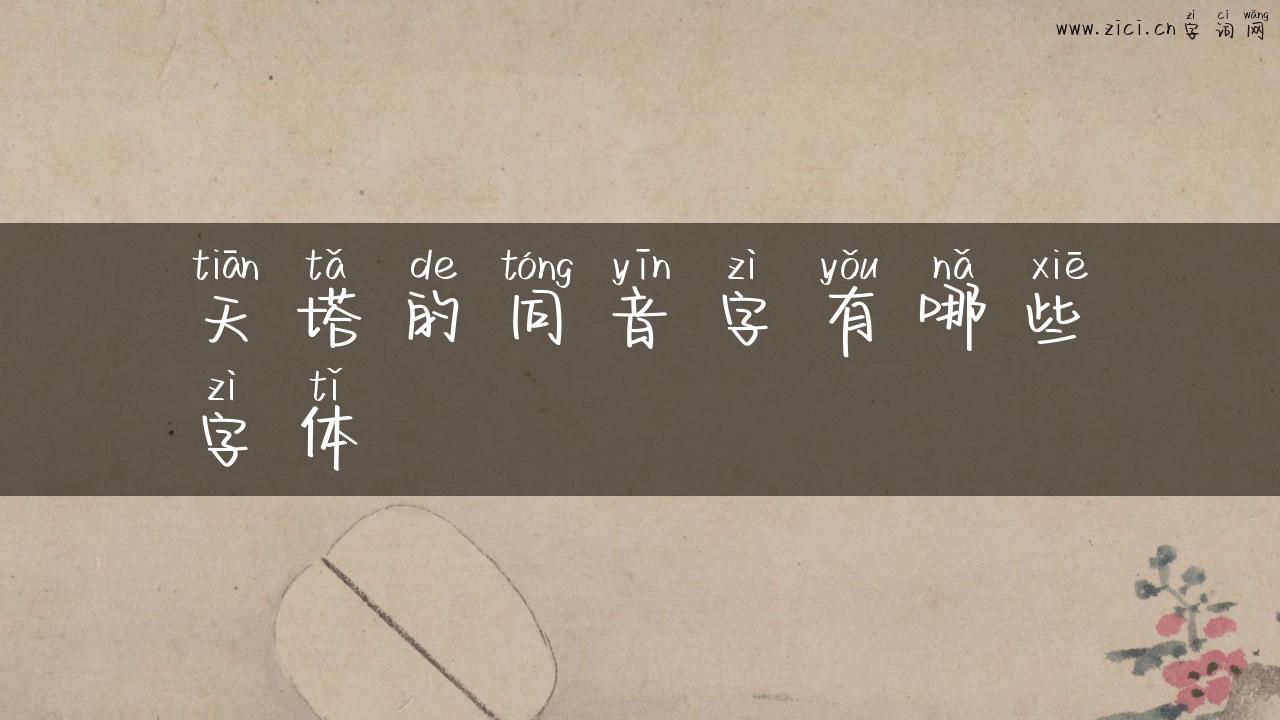 zì cí wǎng
www.zici.cn 字词网
tiān tǎ de tóng yīn zì yǒu nǎ xiē
天塔的同音字有哪些
zì tǐ
字体